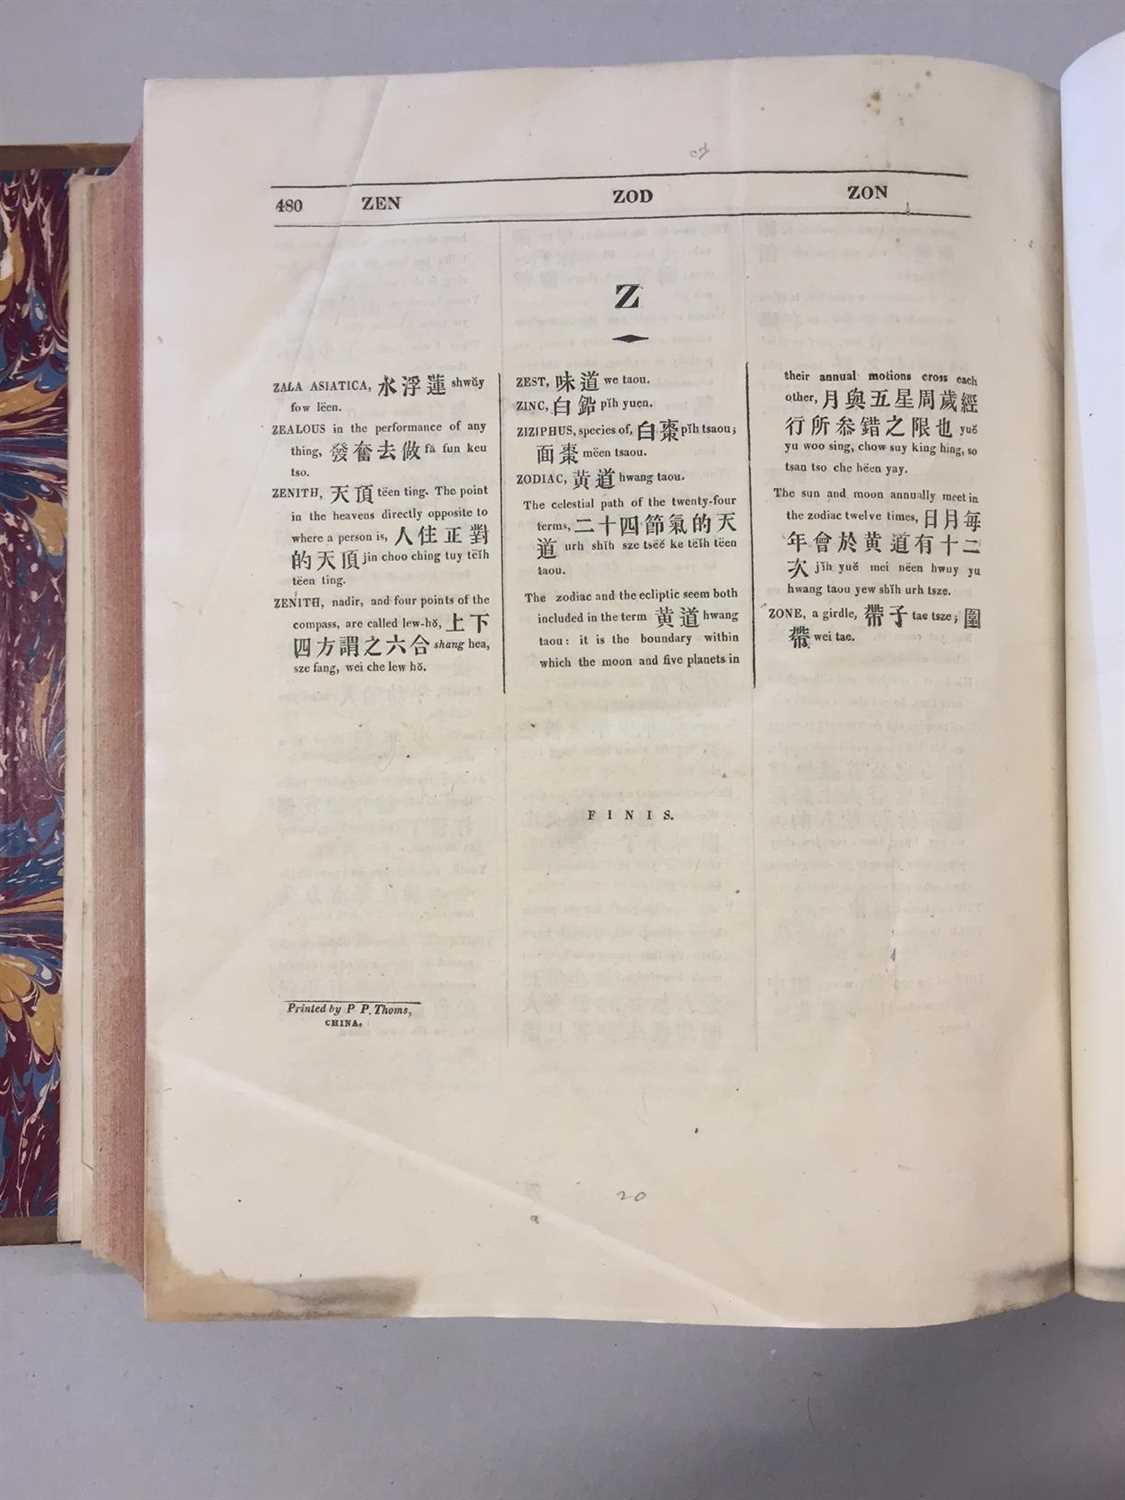 480 ZEN ZOD ZON
Z
ZALA ASIATICA, 水浮蓮 shwŭy
fow lëen.
ZEALOUS in the performance of any
thing, 發奮去做 fă fun keu
tso.
ZENITH, 天頂 tëen ting. The point
in the heavens directly opposite to
where a person is, 人住正對
的天頂 jin choo ching tuy tëĭh
tëen ting.
ZENITH, nadir, and four points of the
compass, are called lew-hŏ, 上下
四方謂之六合 shang hea,
sze fang, wei che lew hŏ.
ZEST, 味道 we taou.
ZINC, 白鉛 pĭh yuen.
ZIZIPHUS, species of, 白棗 pĭh tsaou;
面棗 mëen tsaou.
ZODIAC, 黄道 hwang taou.
The celestial path of the twenty-four
terms, 二十四節氣的天
道 urh shĭh sze tsëĕ ke tëĭh tëen
taou.
The zodiac and the ecliptic seem both
included in the term 黄道 hwang
taou: it is the boundary within
which the moon and five planets in
their annual motions cross each
other, 月與五星周歲經
行所叅錯之限也 yuĕ
yu woo sing, chow suy king hing, so
tsan tso che hëen yay.
The sun and moon annually meet in
the zodiac twelve times, 日月每
年會於黄道有十二
次 jĭh yuĕ mei nëen hwuy yu
hwang taou yew shĭh urh tsze.
ZONE, a girdle, 帶子 tae tsze; 圍
帶 wei tae.
FINIS.
Printed by P P. Thoms,
CHINA.
20